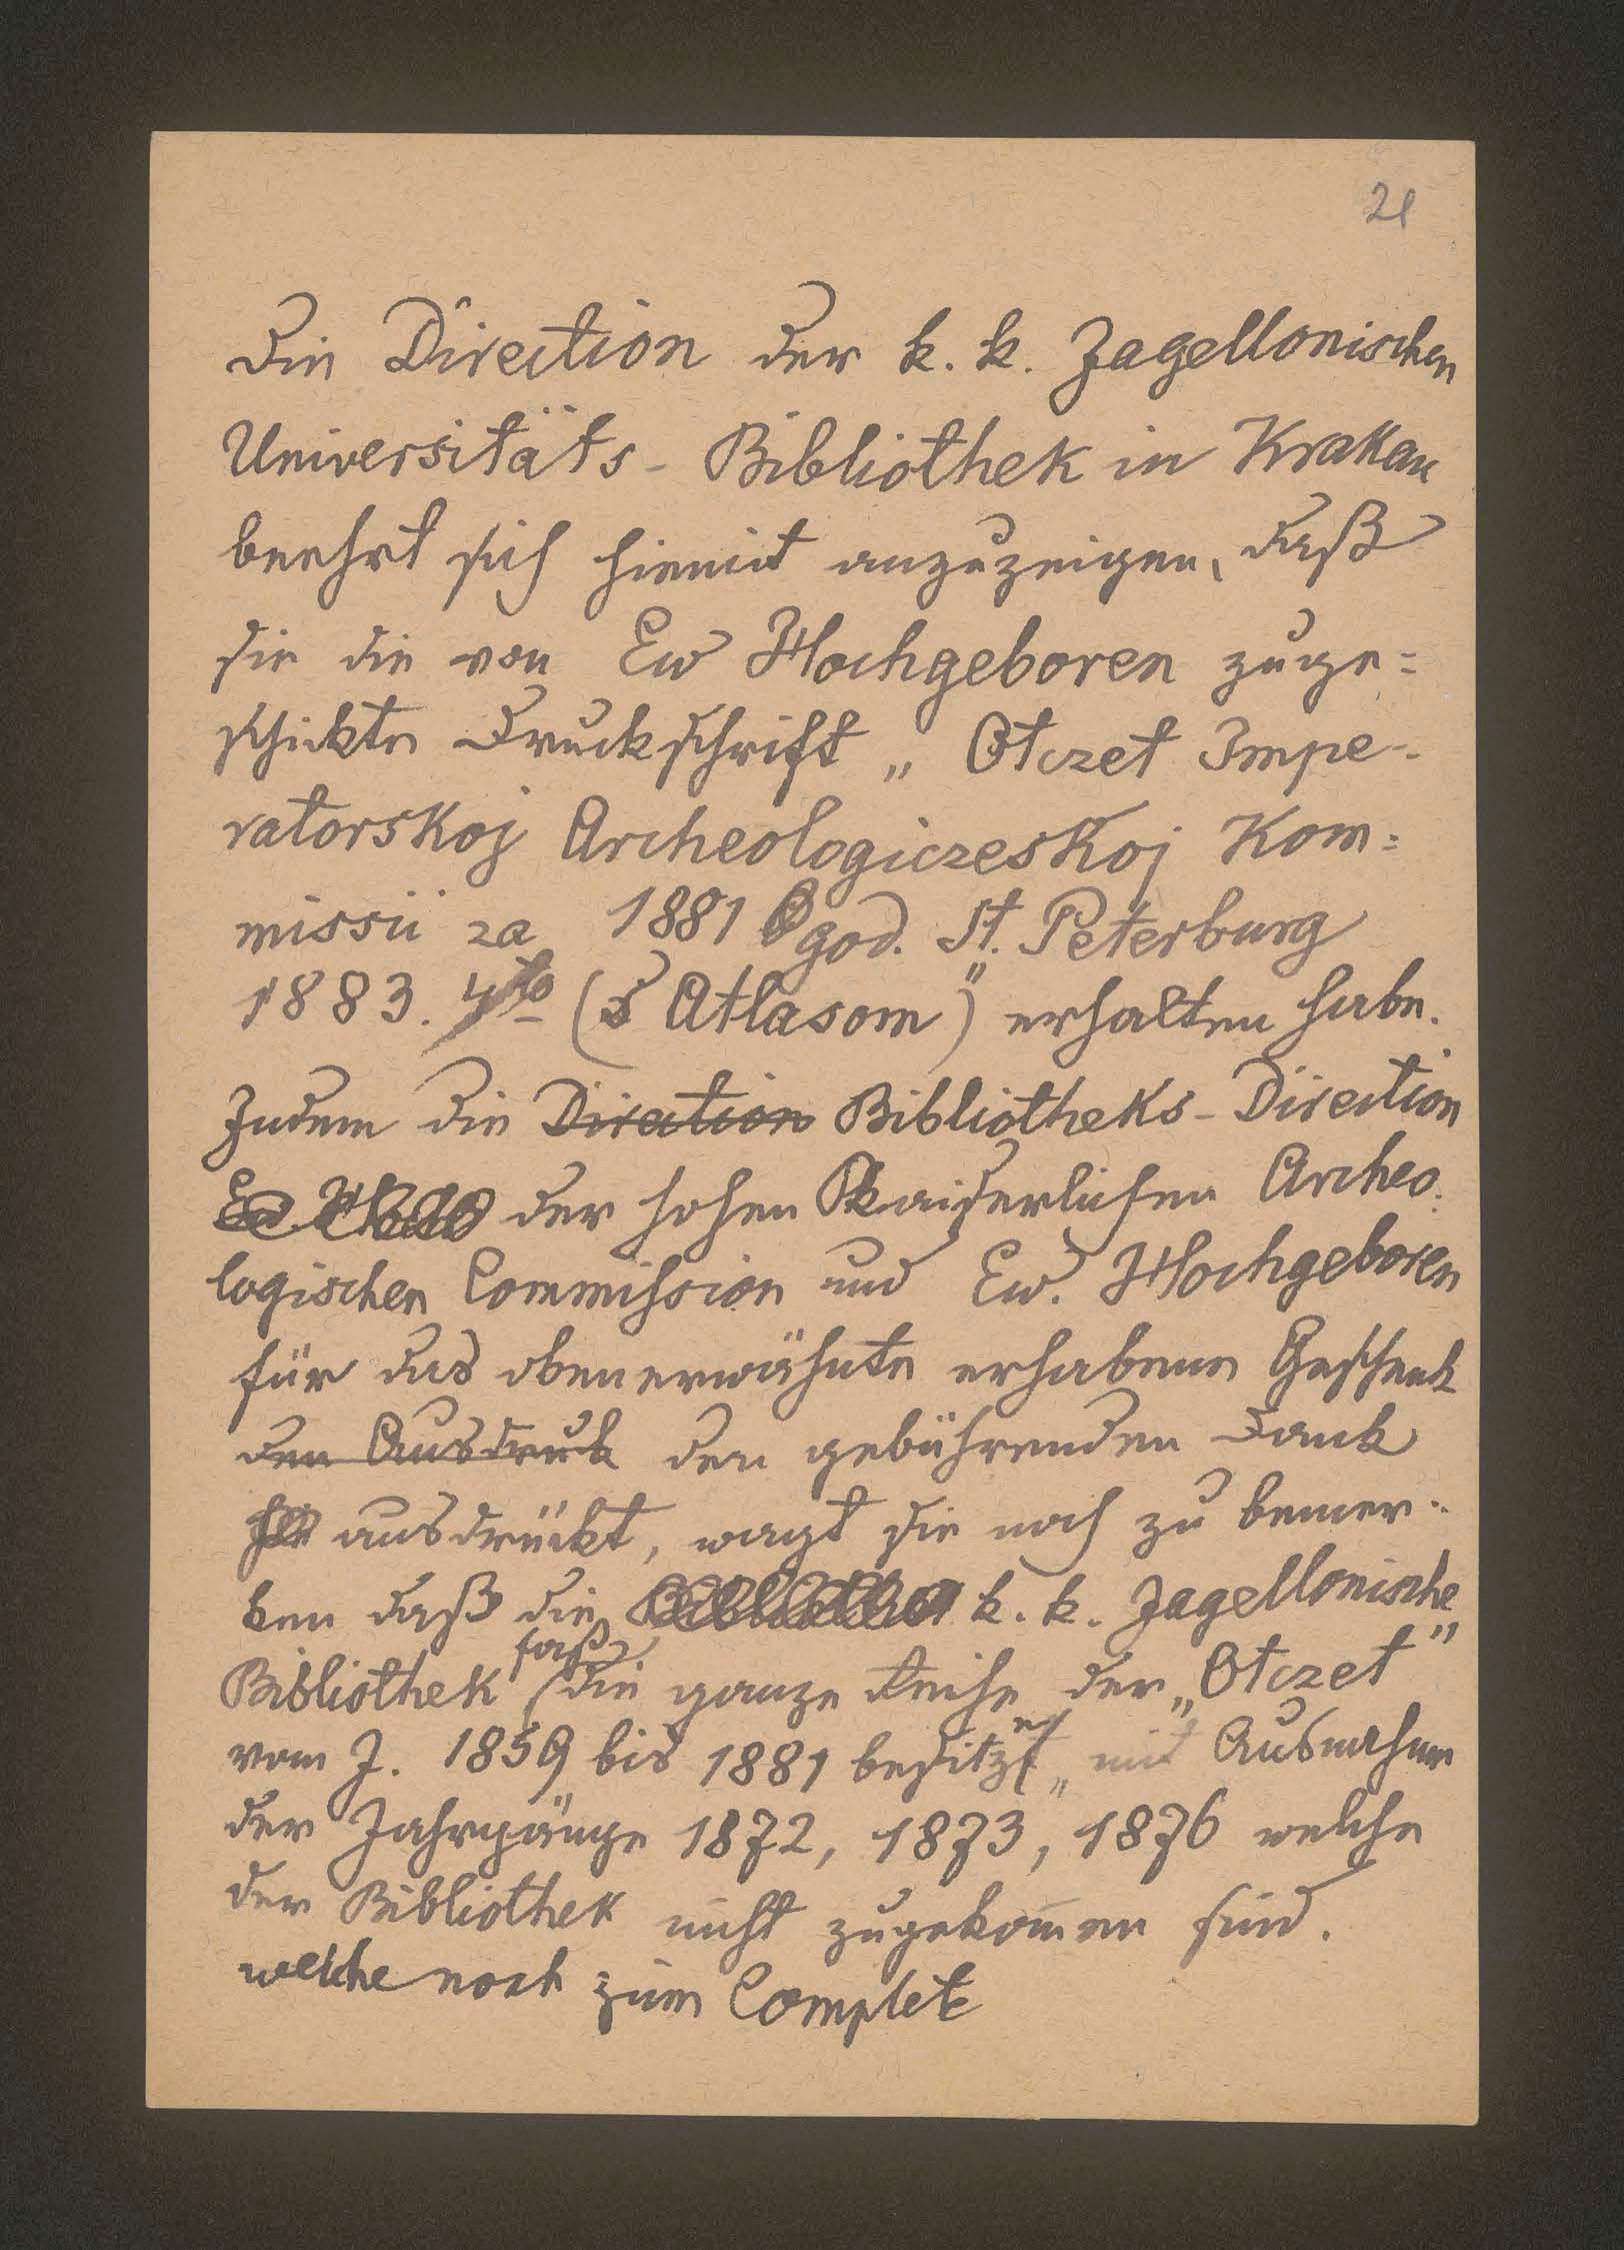 21
Die Direction der k. k. Jagellonischen
Universitäts-Bibliothek in Krakau
beehrt sich hiemit anzuzeigen, daß
sie die von Ew Hochgeboren zuge=
schickte Druckschrift „Otczet Impe-
ratorskoj Archeologiczeskoj Kom=
missii za 1881 god. St. Peterburg
1883. 4to (s Atlasom)" erhalten habe.
Indem die Direction Bibliotheks-Direction
Ew. der hohen kaiserlichen Archeo-
logischen Commission und Ew. Hochgeboren
für das obenerwähnte erhabene Geschenk
den Ausdruck den gebührenden Dank
ausdrückt, wagt sie noch zu bemer-
ken daß die Bibliothek k. k. Jagellonische
Bibliothek fast die ganze Reihe der „Otczet"
vom J. 1859 bis 1881 besitzt, mit Ausnahme
der Jahrgänge 1872, 1873, 1876 welche
der Bibliothek nicht zugekom̄en sind.
welche noch zum Complete